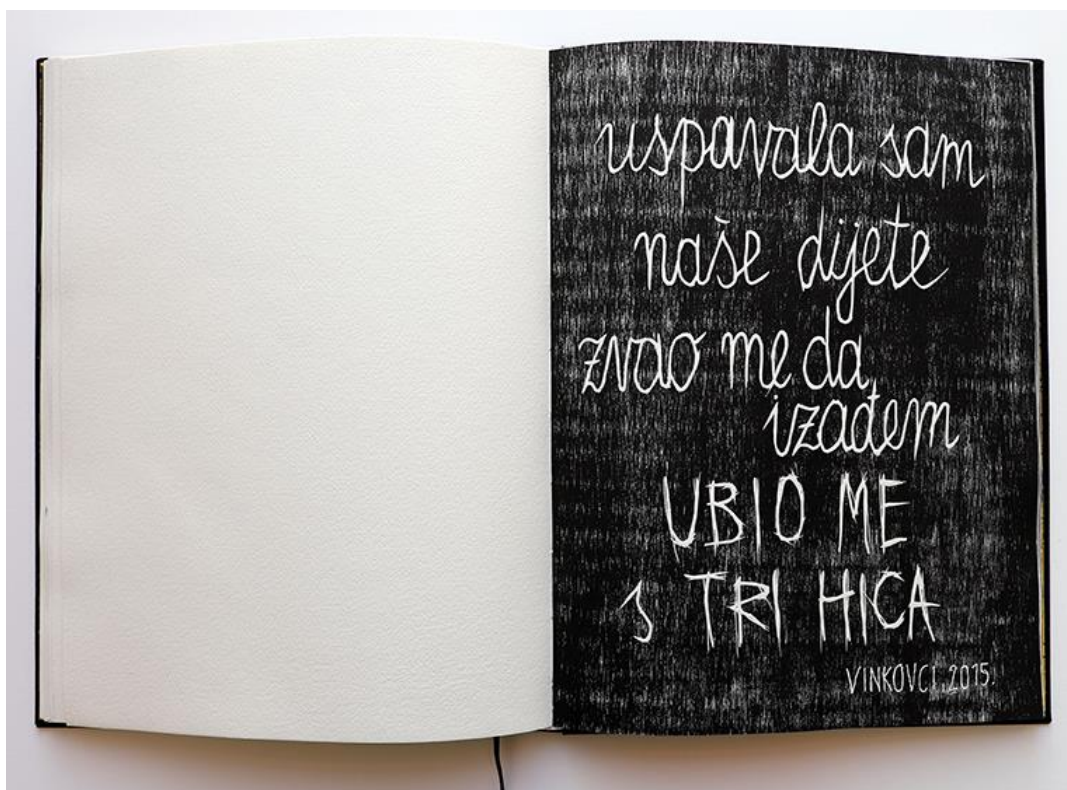 uspavala sam
naše dijete
zvao me da
izađem
UBIO ME
s TRI HICA
VINKOVCI, 2015.